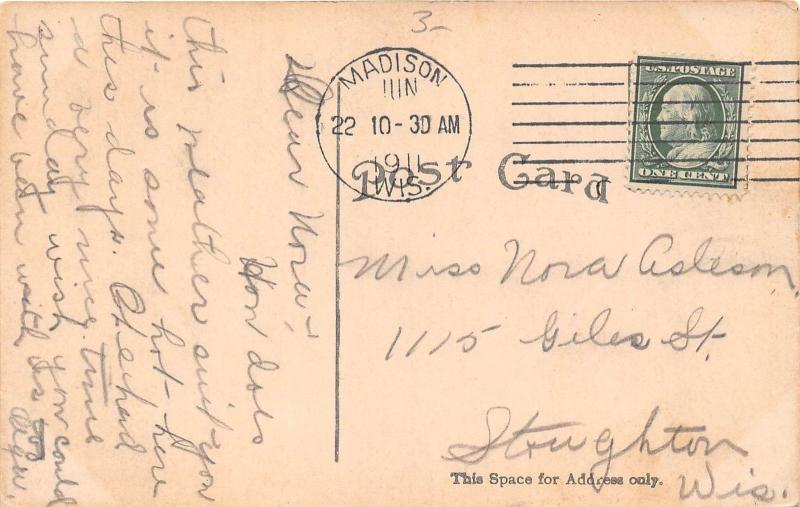 3-
MADISON
JUN
22 10-30 AM
1911
WIS.
U.S. POSTAGE
ONE CENT
Post Card
Dear Nora:-
How dos
this weather suit you
it is some hot here
this days. We had
a very nice time
sunday wish you could
have been with us
Miss Nora Asleson,
1115 Giles St.
Stoughton
Wis.
This Space for Address only.